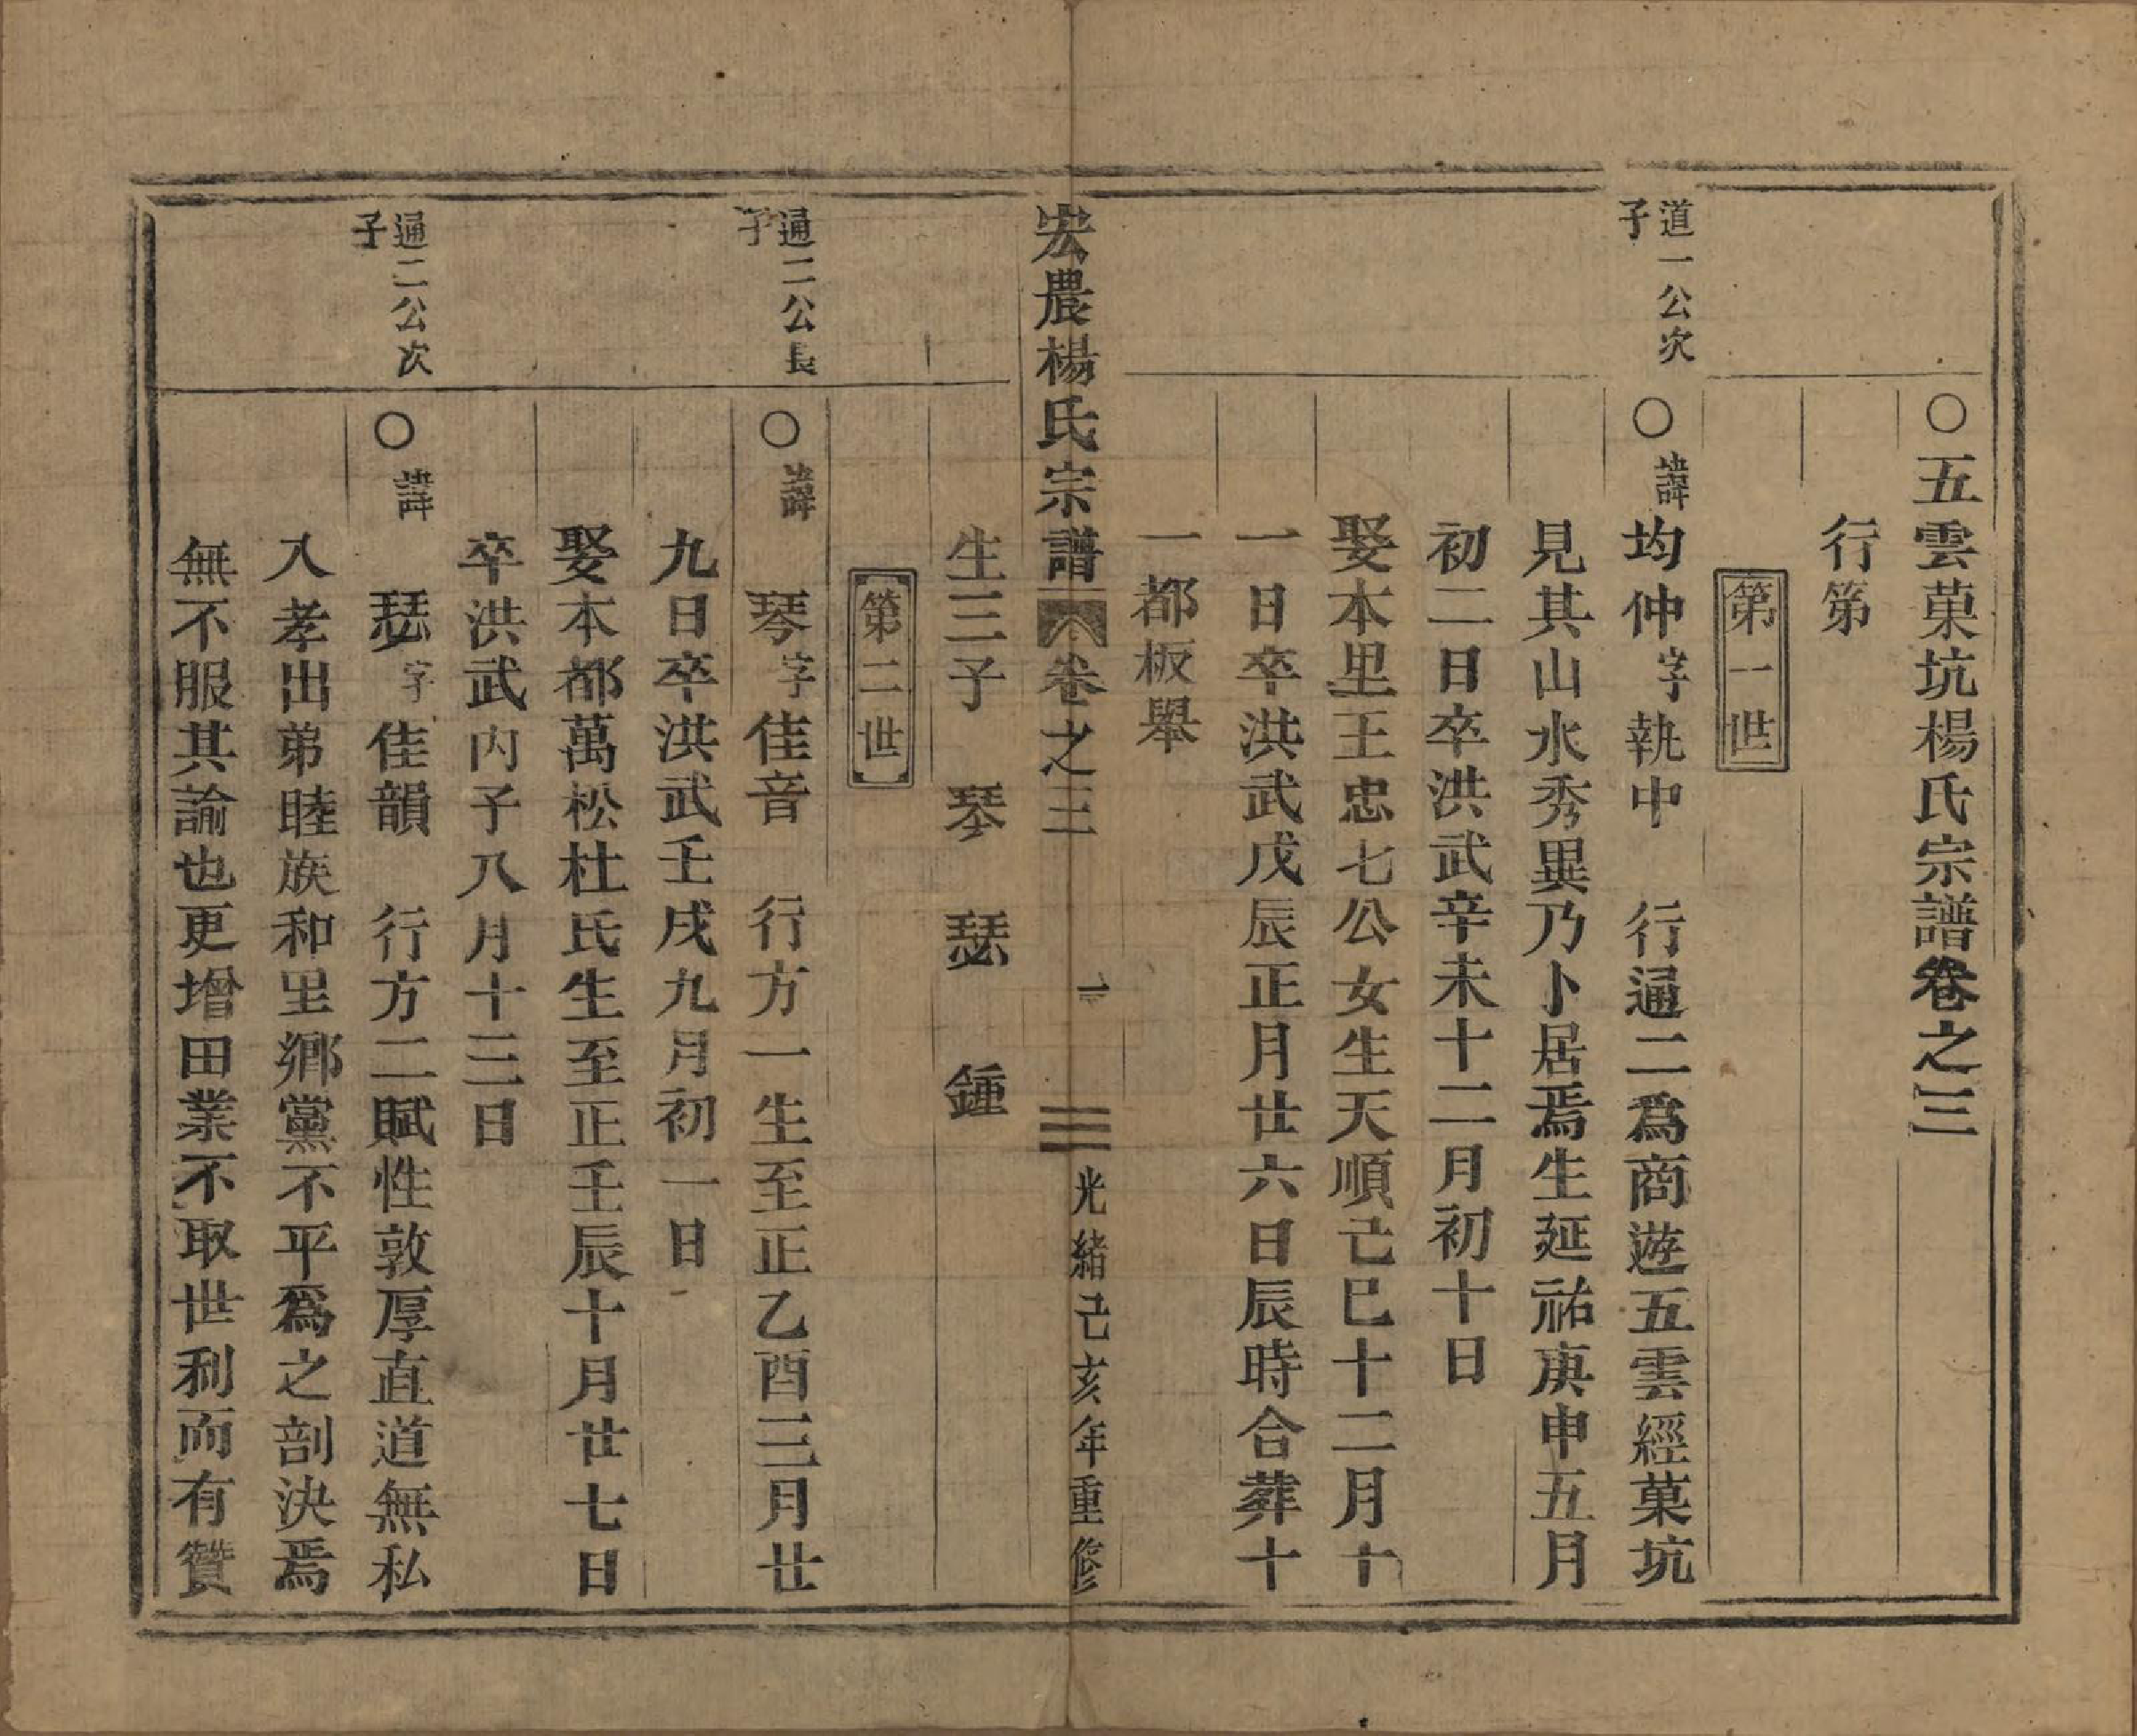 ○五雲菓坑楊氏宗譜卷之三
行第
第一世
道一公次子
○諱均仲字執中 行通二為商遊五雲經菓坑
見其山水秀異乃卜居焉生延祐庚申五月
初二日卒洪武辛未十二月初十日
娶本里王忠七公女生天順己巳十二月十
一日卒洪武戊辰正月廿六日辰時合葬十
一都板舉
宏農楊氏宗譜 卷之三 一 光緒己亥年重修
生三子 琴 瑟 鍾
第二世
通二公長子
○諱 琴字佳音 行方一生至正乙酉三月廿
九日卒洪武壬戌九月初一日
娶本都萬松杜氏生至正壬辰十月廿七日
卒洪武丙子八月十三日
通二公次子
○諱 瑟字佳韻 行方二賦性敦厚直道無私
入孝出弟睦族和里鄉黨不平為之剖決焉
無不服其論也更增田業不取世利而有贊